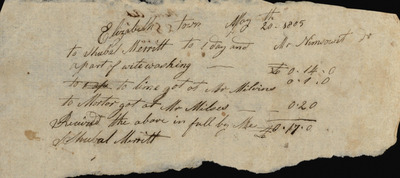 Elizabeth town May th 20. 1805
to Shubal Merritt to 1 day and Mr
a part of witewashing — £ 0.14.0
to lime got at Mr 0.1.0
to Morter got at Mr — 0.2.0
Received the above in full by Me £0.17.0
Shubal Merritt